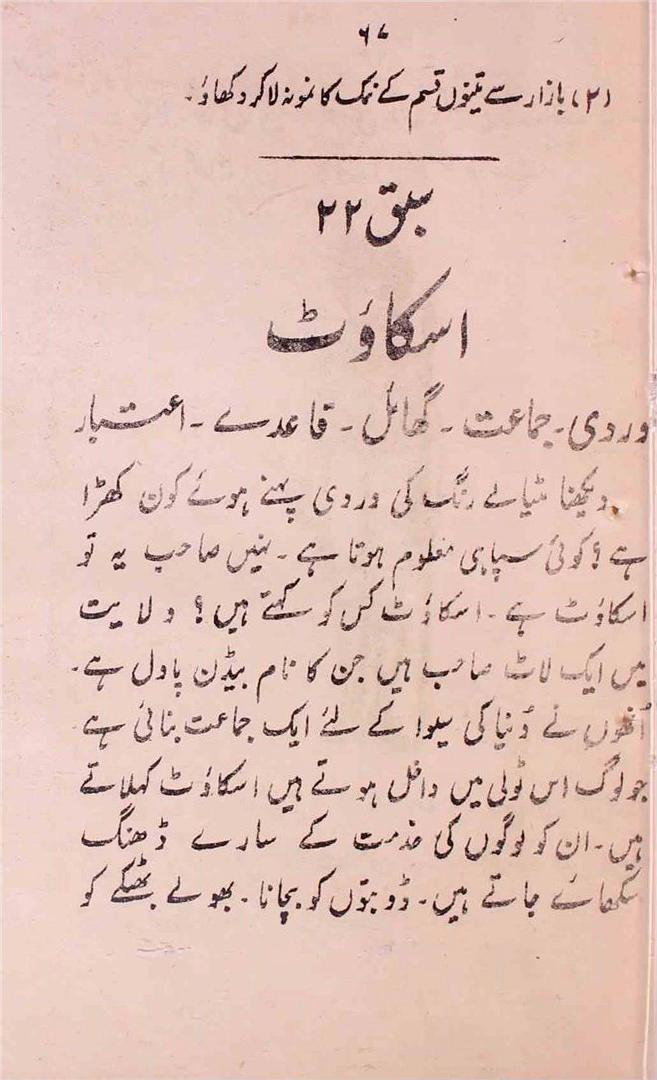 ۶۷
(۲) بازار سے تینوں قسم کے نمک کا نمونہ لا کر دکھاؤ۔
سبق ۲۲
اسکاوٹ
وردی۔ جماعت۔ گھائل۔ قاعدے۔ اعتبار
دیکھنا مٹیالے رنگ کی وردی پہنے ہوئے کون کھڑا
ہے؟ کوئی سپاہی معلوم ہوتا ہے۔ نہیں صاحب یہ تو
اسکاؤٹ ہے۔ اسکاؤٹ کس کو کہتے ہیں؟ ولایت
میں ایک لاٹ صاحب ہیں جن کا نام بیڈن پاول ہے۔
اُنھوں نے دُنیا کی سیوا کے لئے ایک جماعت بنائی ہے
جو لوگ اس ٹولی میں داخل ہوتے ہیں اسکاؤٹ کہلاتے
ہیں۔ ان کو لوگوں کی خدمت کے سارے ڈھنگ
سکھائے جاتے ہیں۔ ڈوبتوں کو بچانا۔ بھولے بھٹکے کو